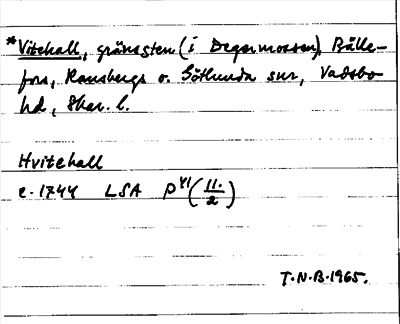 *Vitehall, gränssten (i Degermossen), Bälle-
fors, Ransbergs o. Götlunda snr, Vadsbo
hd, Skar. l.
Hvitehall
c. 1744 LSA P41 (11./2)
T.N.B. 1965.